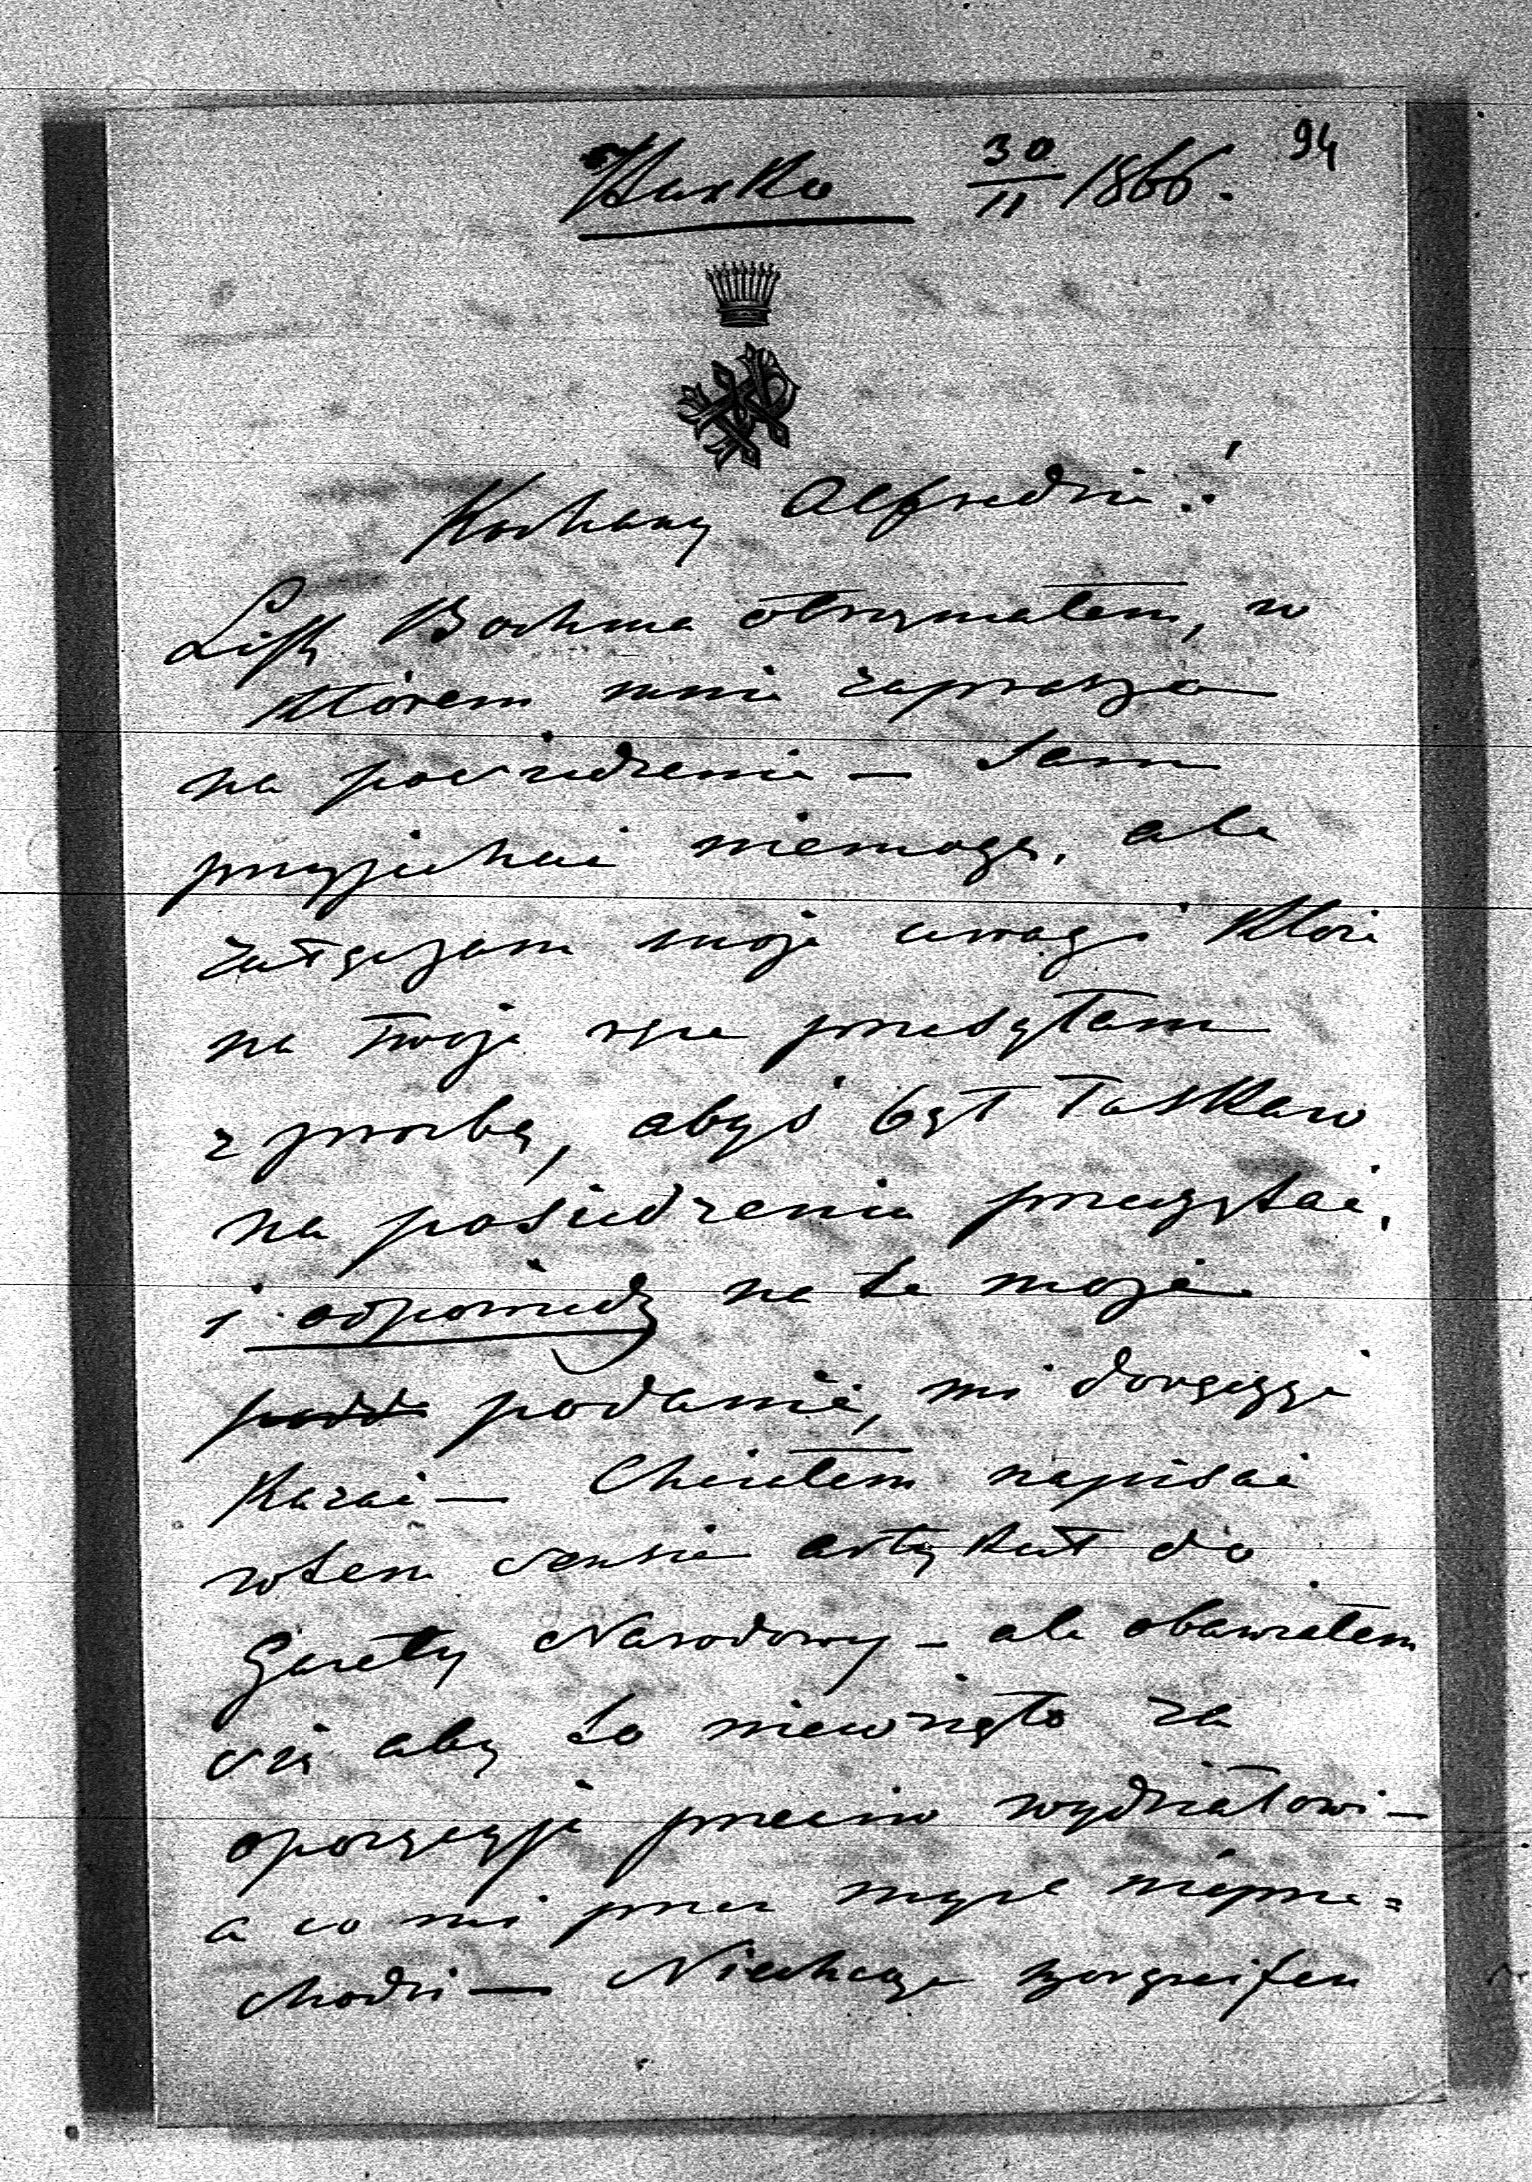 30/11 1866. 94
Kochany Alfredzie!
List Bochma otrzymałem, w
którem mnie zaprasza
na posiedzenie – Sam
przyjechać niemogę, ale
załączam moje uwagi które
na twoje ręce przesyłam
z prozbą, abyś był łaskaw
na posiedzeniu przeczytać,
i odpowiedź na te moje
podanie, mi doręczyć
kazać – Chciałem napisać
wtem sensie artykuł do
Gazety Narodowy – ale obawiałem
się aby to niewzięto za
opozycyję przeciw wydziałowi –
a co mi przez myśl nieprze=
chodzi – Niechcę vorgreifen